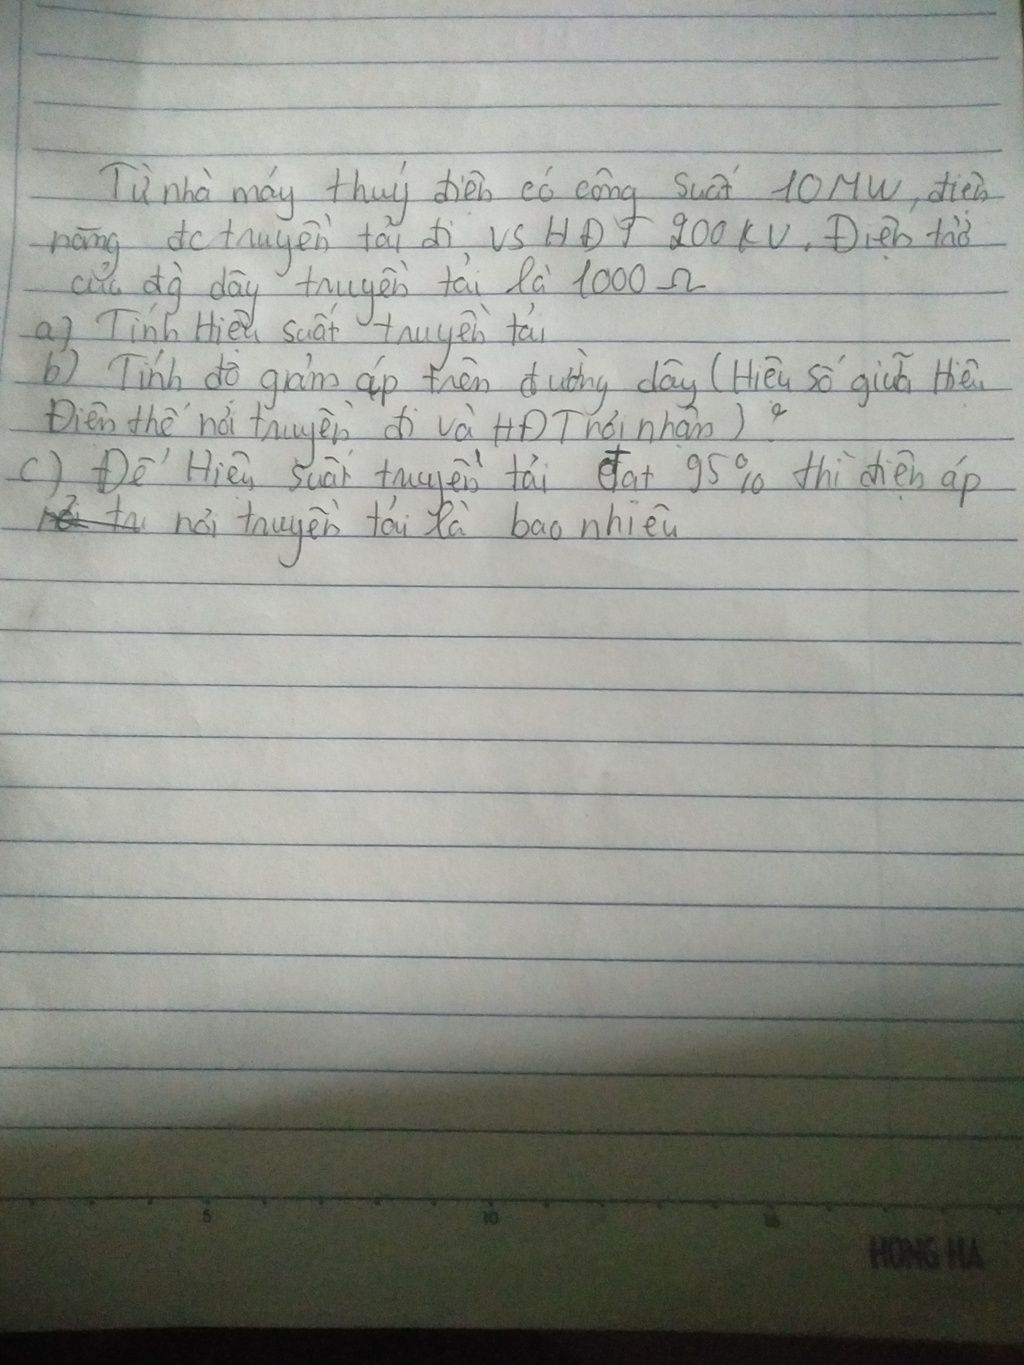 Từ nhà máy thuỷ điện có công suất 10MW, điện
năng đc truyền tải đi vs HĐT 200KV. Điện trở
của đg dây truyền tải là 1000 Ω
a) Tính Hiệu suất truyền tải
b) Tính độ giảm áp trên đường dây (Hiệu số giữa Hiệu
Điện thế nơi truyền đi và HĐT nơi nhận)?
c) Để Hiệu suất truyền tải đạt 95% thì điện áp
nơi truyền tải là bao nhiêu
5 10 15
HONG HA